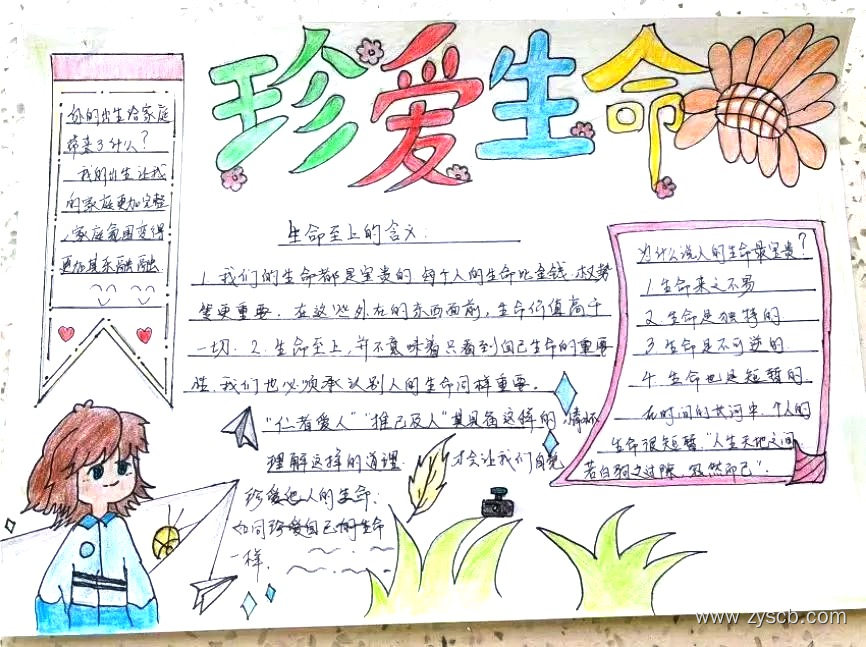 珍爱生命
你的出生给家庭
带来了什么?
我的出生让我
的家庭更加完整
,家庭氛围变得
更加其乐融融.
生命至上的含义:
1.我们的生命都是宝贵的.每个人的生命比金钱.权势
等更重要.在这些外在的东西面前,生命价值高于
一切.2.生命至上,并不意味着只看到自己生命的重要
性.我们也必须承认别人的生命同样重要。
"仁者爱人""推己及人"其具备这样的.情怀
理解这样的道理.才会让我们自觉
珍爱他人的生命.
如同珍爱自己的生命
一样.
为什么说人的生命最宝贵?
1.生命来之不易
2.生命是独特的
3.生命是不可逆的
4.生命也是短暂的.
在时间的长河中.个人的
生命很短暂."人生天地之间
若白驹之过隙.忽然而已".
www.zyscb.com